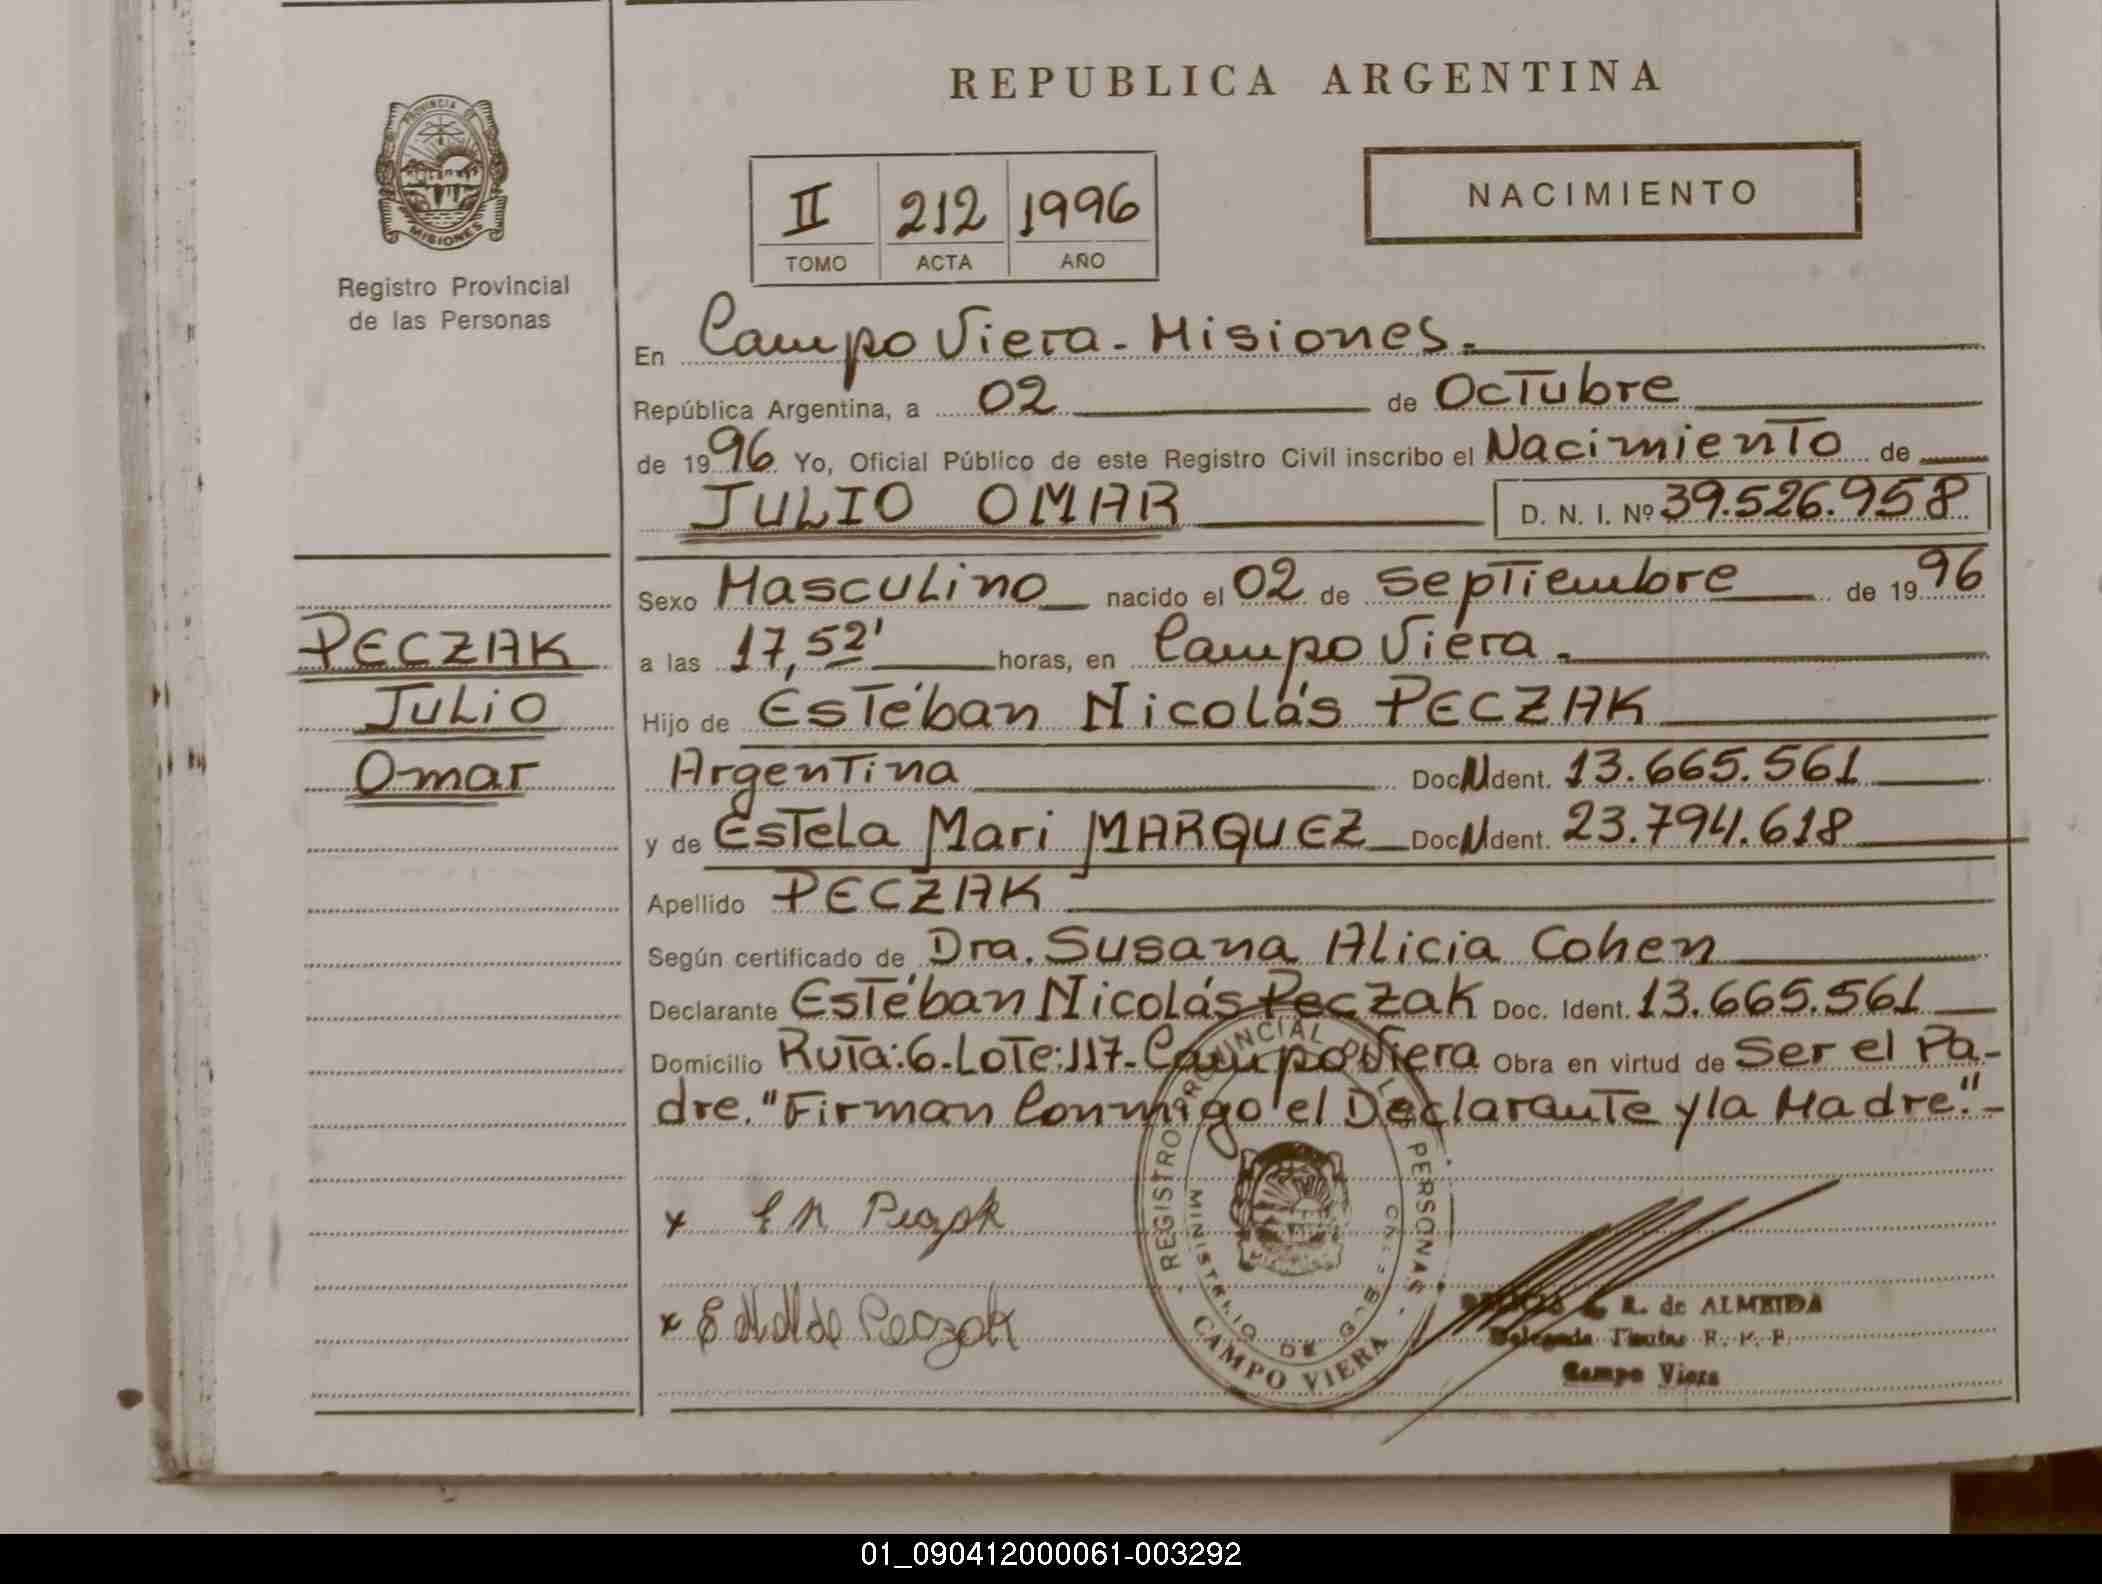 REPUBLICA ARGENTINA
PROVINCIA DE
MISIONES
Registro Provincial
de las Personas
II 212 1996
TOMO ACTA AÑO
NACIMIENTO
En Campo Viera - Misiones.
República Argentina, a 02 de Octubre
de 1996 Yo, Oficial Público de este Registro Civil inscribo el Nacimiento de
JULIO OMAR D. N. I. Nº 39.526.958
Sexo Masculino nacido el 02 de Septiembre de 1996
PECZAK
a las 17,52' horas, en Campo Viera.
Julio
Hijo de Estéban Nicolás PECZAK
Omar
Argentina Doc. N Ident. 13.665.561
y de Estela Mari MARQUEZ Doc. N Ident. 23.794.618
Apellido PECZAK
Según certificado de Dra. Susana Alicia Cohen
Declarante Estéban Nicolás Peczak Doc. Ident. 13.665.561
Domicilio Ruta:6-Lote:117-Campo Viera Obra en virtud de Ser el Pa-
dre. "Firman Conmigo el Declarante y la Madre."-
x E N Peczak
x Peczak
REGISTRO PROVINCIAL DE LAS PERSONAS
MINISTERIO DE GOB.
CAMPO VIERA
R. de ALMEIDA
Delegada Titular R. P. P.
Campo Viera
01_090412000061-003292